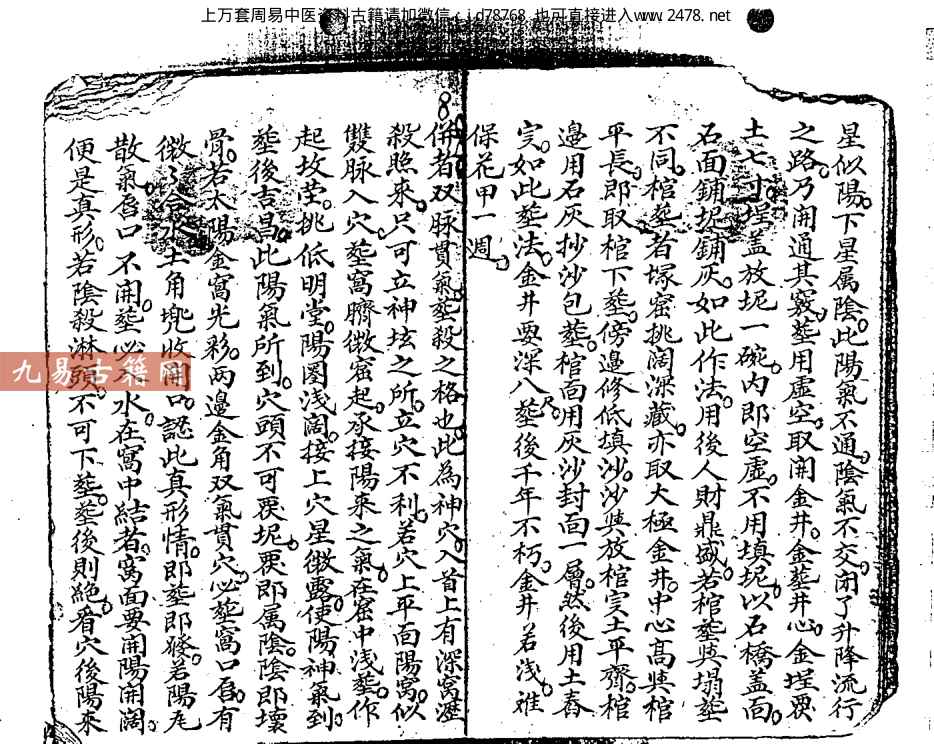 上万套周易中医资料古籍请加微信:jd78768 也可直接进入www.2478.net
星似陽。下星属陰。此陽氣不通。陰氣不交。閉了升降流行
之路。乃開通其竅。塟用虛空。取開金井。金塟井心。金埕要
土七寸。埕盖放坭一碗。內即空虛。不用填坭。以石橋盖面。
石面鋪坭鋪灰。如此作法。用後人財鼎盛。若棺塟與塌塟
不同。棺塟者塚窟挑闊深藏。亦取大極金井。中心高與棺
平長。即取棺下塟。傍邉修低填沙。沙與放棺实土平齊。棺
邉用石灰抄沙包塟。棺面用灰沙封面一層。然後用土舂
实。如此塟法。金井要深八尺。塟後千年不朽。金井若浅。难
保花甲一週。
併者双脉貫氣。塟殺之格也。此為神穴。入首上有深窝。涯
殺照來。只可立神坛之所。立穴不利。若穴上平面陽窝。似
雙脉入穴。塟窩臍微窟起。承接陽來之氣。在窟中浅塟。作
起坟堂。挑低明堂。陽圏浅闊。接上穴星微露。使陽神氣到。
塟後吉昌。此陽氣所到。穴頭不可要坭。要即属陰。陰即壊
骨。若太陽金窩光彩。两邉金角双氣貫穴。必塟窩口。唇有
微〻合水。土角兠收開口。認此真形情。即塟即發。若陽龙
散氣。唇口不開。塟必入水。在窩中結者。窩面要開陽開闊。
便是真形。若陰殺淋頭。不可下塟。塟後則絶。看穴後陽來
九易古籍网